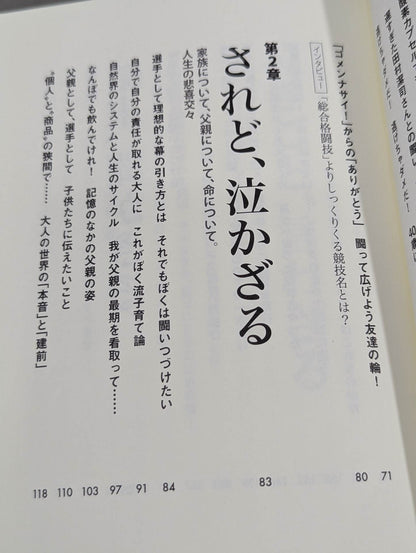 酸素カプセル
過ぎた田村潔司さんとの戦い
逃げちゃダメだ!
40歳
「ゴメンナサイ!」からの「ありがとう」 闘って広げよう友達の輪! 71
インタビュー 「総合格闘技」よりしっくりくる競技名とは? 80
第2章
されど、泣かざる 83
家族について、父親について、命について。
人生の悲喜交々
選手として理想的な幕の引き方とは それでもぼくは闘いつづけたい 84
自分で自分の責任が取れる大人に これがぼく流子育て論 91
自然界のシステムと人生のサイクル 我が父親の最期を看取って…… 97
なんぼでも飲んでけれ! 記憶のなかの父親の姿 103
父親として、選手として 子供たちに伝えたいこと 110
“個人”と“商品”の狭間で…… 大人の世界の「本音」と「建前」 118